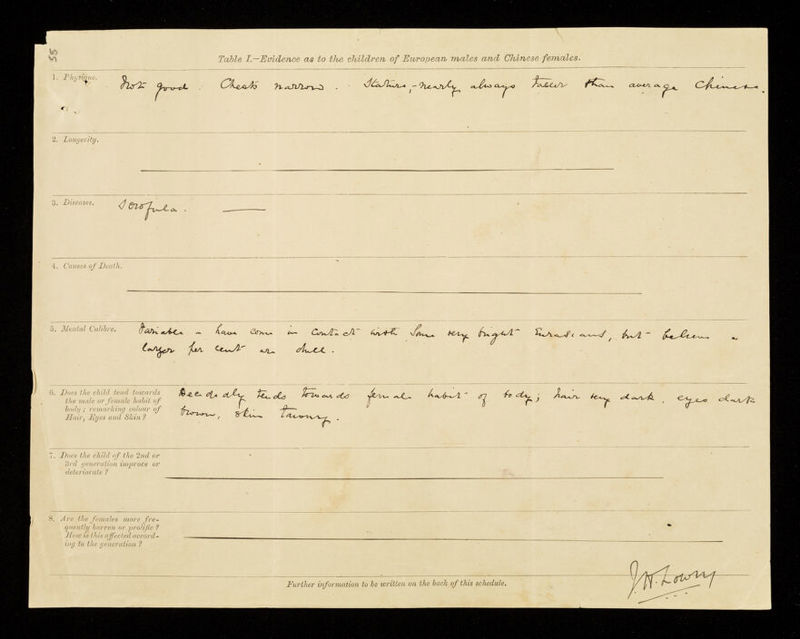 55
Table I.—Evidence as to the children of European males and Chinese females.
1. Physique.
Not good. Chests narrow. Stature,-nearly always taller than average Chinese.
2. Longevity.
3. Diseases.
Scrofula.
4. Causes of Death.
5. Mental Calibre.
Variable - have come in contact with some very bright Eurasians, but believe a
larger per cent are dull.
6. Does the child tend towards
the male or female habit of
body; remarking colour of
Hair, Eyes and Skin?
Decidedly tends towards female habit of body; hair very dark, eyes dark
brown, skin tawny.
7. Does the child of the 2nd or
3rd generation improve or
deteriorate?
8. Are the females more fre-
quently barren or prolific?
How is this affected accord-
ing to the generation?
Further information to be written on the back of this schedule.
J.H. Lowry